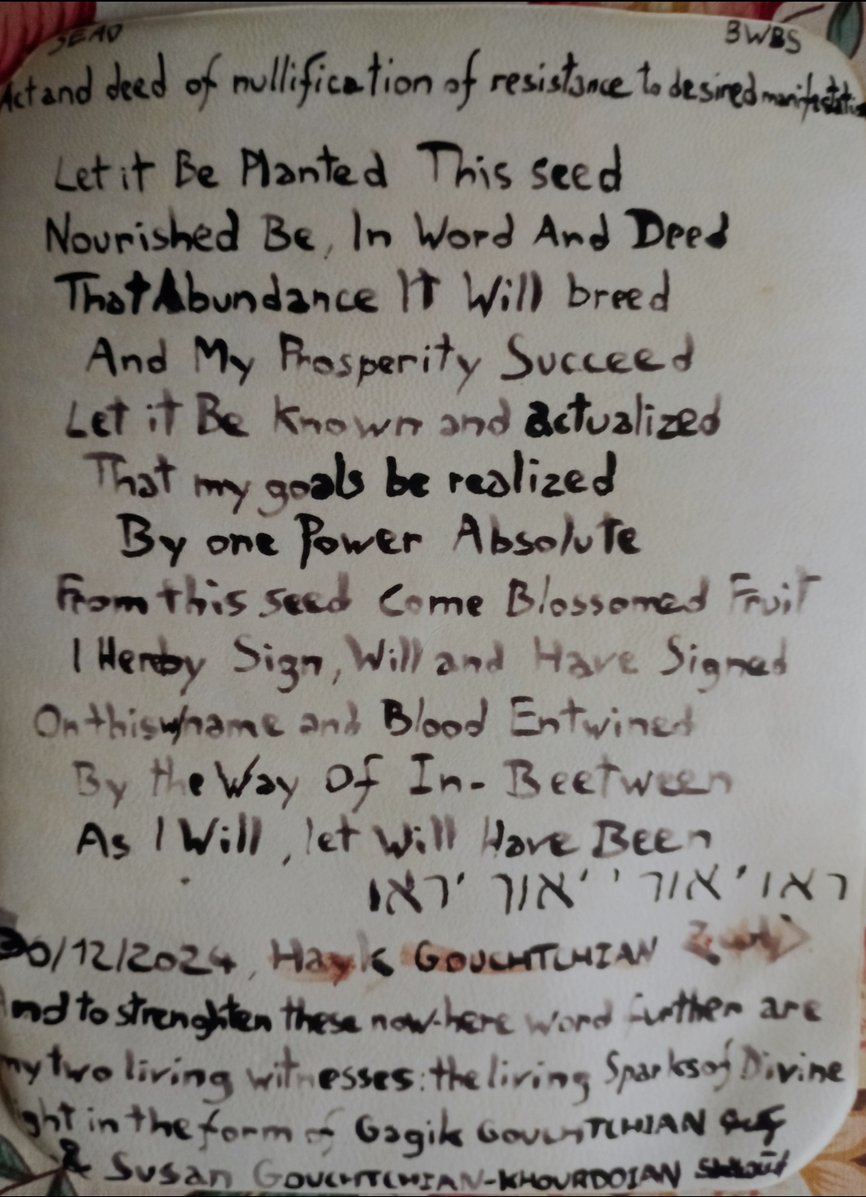 SEAD BWBS
Act and deed of nullification of resistance to desired manifestation
Let it Be Planted This seed
Nourished Be, In Word And Deed
That Abundance It Will breed
And My Prosperity Succeed
Let it Be Known and actualized
That my goals be realized
By one Power Absolute
From this seed Come Blossomed Fruit
I Hereby Sign, Will and Have Signed
On this w/name and Blood Entwined
By the Way Of In-Beetween
As I Will, let Will Have Been
ראו'אור ''אור 'ראו
30/12/2024, Hayk GOUCHTCHIAN
And to strenghten these now-here word further are
my two living witnesses: the living Sparks of Divine
ght in the form of Gagik GOUCHTCHIAN
& Susan GOUCHTCHIAN-KHOURDOIAN